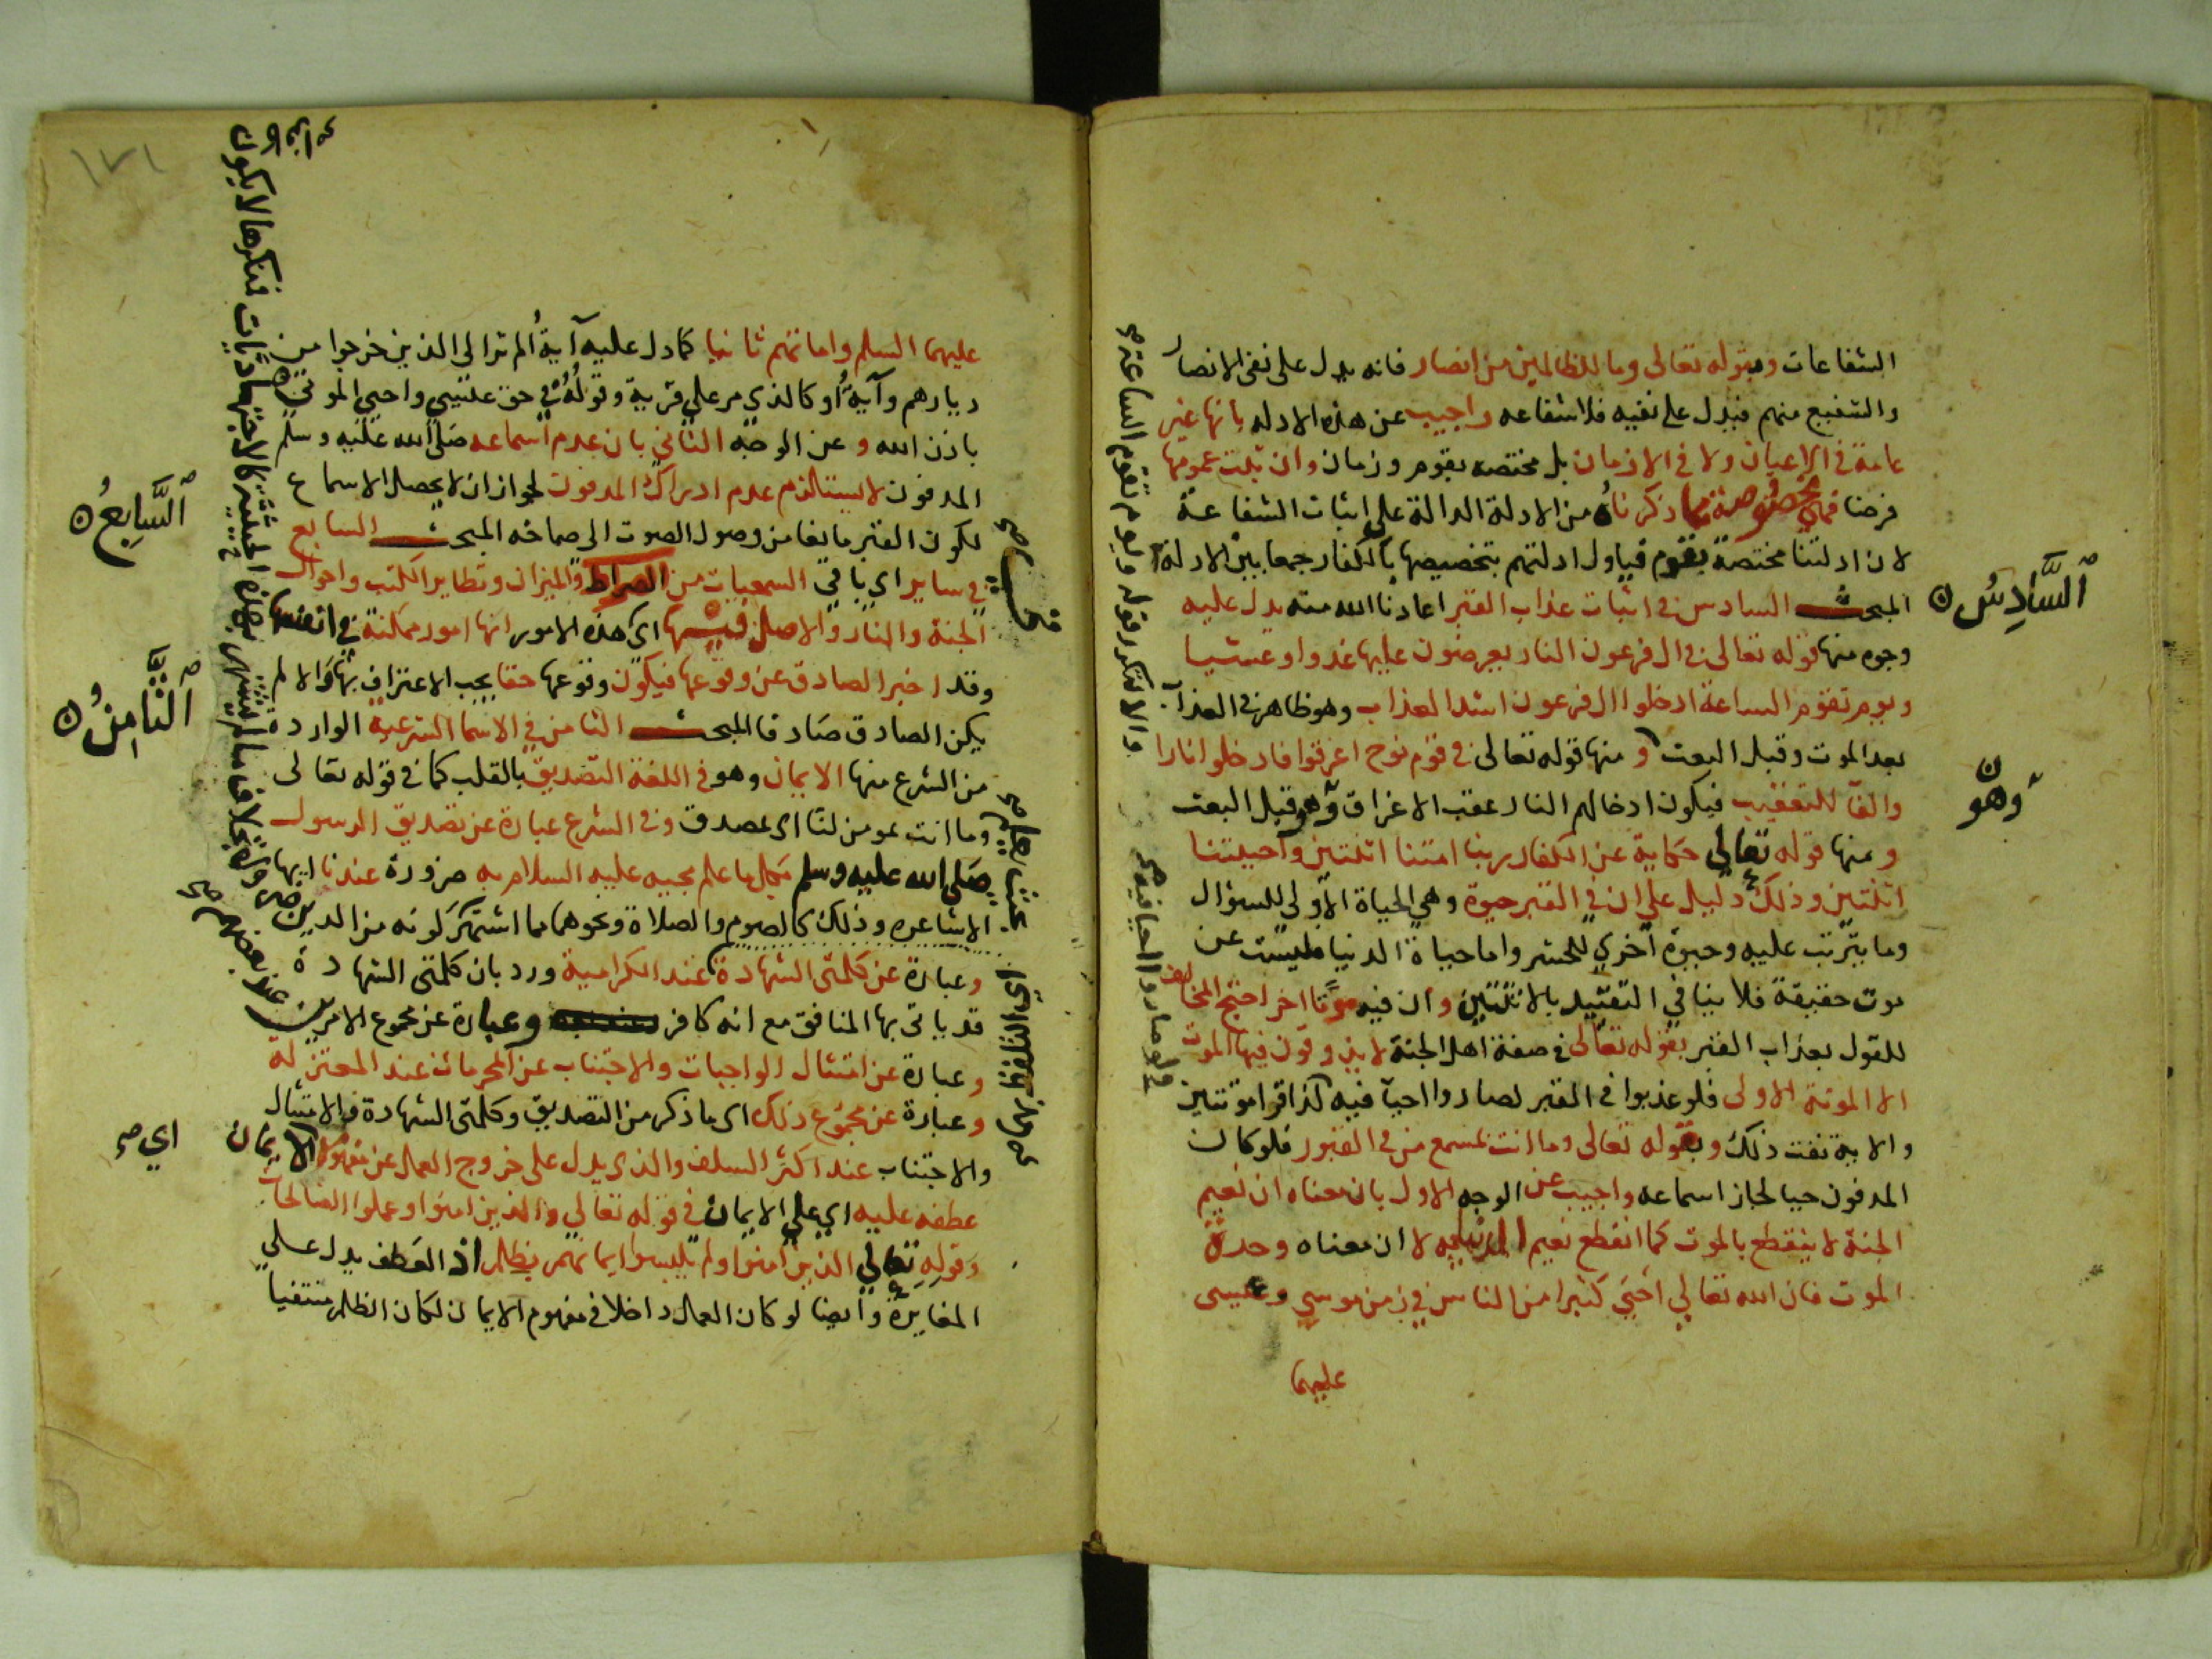 الشفاعات وبقوله تعالى وما للظالمين من انصار فانه يدل على نفي الانصار
والشفيع منهم فيدل على نفيه فلا شفاعه واجيب عن هذه الادله بأنها غير
عامة في الاعيان ولا في الازمان بل مختصه بقوم وزمان وان ثبت عمومها
فرضا فهي مخصوصة بما ذكرناه من الادلة الدالة على اثبات الشفاعة
لان ادلتنا مختصة بقوم فياول ادلتهم بتخصيصها بالكفار جمعا بين الادلة
المبحث السادس في اثبات عذاب القبر اعاذنا الله منه يدل عليه
وجوه منها قوله تعالى في ال فرعون النار يعرضون عليها غدوا وعشيا
ويوم تقوم الساعة ادخلوا ال فرعون اشد العذاب وهو ظاهر في العذاب
بعد الموت وقبل البعث و منها قوله تعالى في قوم نوح اغرقوا فادخلوا نارا
والفا للتعقيب فيكون ادخالهم النار عقب الاغراق وهو قبل البعث
ومنها قوله تعالي حكاية عن الكفار ربنا امتنا اثنتين واحييتنا
اثنتين وذلك دليل علي ان في القبر حيوة وهي الحياة الأولى للسؤال
وما يترتب عليه وحيوة أخري للحشر واما حياة الدنيا فليست عن
موت حقيقة فلا ينافي التقييد بالاثنتين وان فيه موتا اخر احتج المخالف
للقول بعذاب القبر بقوله تعالى في صفة اهل الجنة لا يذوقون فيها الموت
الا الموتة الاولى فلو عذبوا في القبر لصاروا احيآ فيه لذاقوا موتتين
والاية نفت ذلك وبقوله تعالى وما انت بمسمع من في القبور فلو كان
المدفون حيا لجاز اسماعه واجيب عن الوجه الاول بان معناه ان نعيم
الجنة لا ينقطع بالموت كما انقطع نعيم الدنيا به لا ان معناه وحدة
الموت فان الله تعالي احيي كثيرا من الناس في زمن موسي وعيسى
عليهما
السَّادِسُ
وهو
عليهما السلم واماتهم ثانيا كما دل عليه آية ألم تر الى الذين خرجوا من
ديارهم وآية أو كالذي مر علي قرية وقوله في حق عيسي واحيي الموتي
باذن الله و عن الوجه الثاني بان عدم اسماعه صلي الله عليه وسلم
المدفون لا يستلزم عدم ادراك المدفون لجواز ان لا يحصل الاسماع
لكون القبر مانعا من وصول الصوت الى صماخه المبحث السابع
في ساير اي باقي السمعيات من الصراط والميزان وتطاير الكتب واحوال
الجنة والنار والاصل فيها اي هذه الامور انها امور ممكنة في انفسها
وقد اخبر الصادق عن وقوعها فيكون وقوعها حقا يجب الاعتراف بها والا لم
يكن الصادق صادقا المبحث الثامن في الاسما الشرعية الواردة
من الشرع منها الايمان وهو في اللغة التصديق بالقلب كما في قوله تعالى
وما انت بمومن لنا اي بمصدق وفي الشرع عبارة عن تصديق الرسول
صلى الله عليه وسلم بكل ما علم مجيه عليه السلام به ضرورة عندنا ايها
الاشاعره وذلك كالصوم والصلاة ونحوهما مما اشتهر كونه من الدين
وعبارة عن كلمتي الشهادة عند الكرامية ورد بان كلمتي الشهادة
قد ياتى بها المنافق مع انه كافر وعبارة عن مجموع الامرين
وعبارة عن امتثال الواجبات والاجتناب عن المحرمات عند المعتزلة
وعبارة عن مجموع ذلك اى ما ذكر من التصديق وكلمتي الشهادة والامتثال
والاجتناب عند اكثر السلف والذي يدل على خروج العمل عن مفهوم الايمان
عطفه عليه اي علي الايمان في قوله تعالي والذين امنوا وعملوا الصالحات
وقوله تعالي الذين امنوا ولم يلبسوا ايمانهم بظلم اذ العطف يدل علي
المغايرة وايضا لو كان العمل داخلا في مفهوم الايمان لكان الظلم منتفيا
السَّابِعُ
الثَّامِنُ
اي صح
١٧١